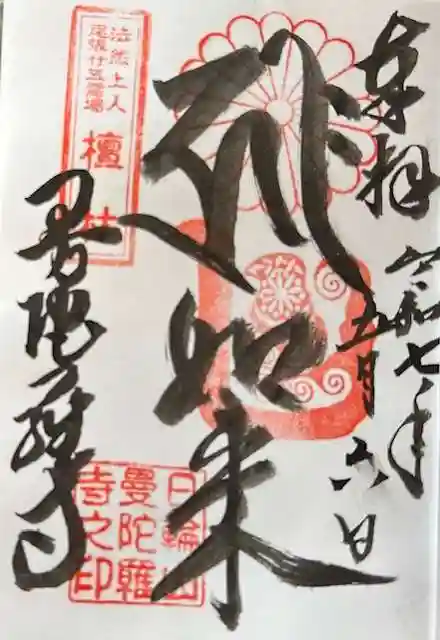 奉拝
令和七年
五月六日
弥如来
曼陀羅寺
法然上人
尾張廿五霊場
檀林
日輪山
曼陀羅
寺之印